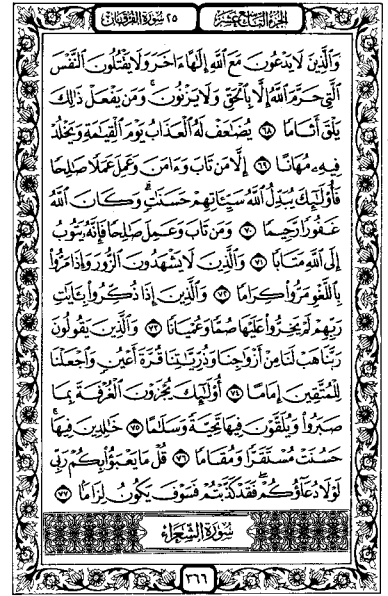 الجزء التاسع عشر
٢٥ سورة الفرقان
وَالَّذِينَ لَا يَدْعُونَ مَعَ اللَّهِ إِلَٰهًا ءَاخَرَ وَلَا يَقْتُلُونَ النَّفْسَ
الَّتِي حَرَّمَ اللَّهُ إِلَّا بِالْحَقِّ وَلَا يَزْنُونَ ۚ وَمَن يَفْعَلْ ذَٰلِكَ
يَلْقَ أَثَامًا ٦٨ يُضَٰعَفْ لَهُ الْعَذَابُ يَوْمَ الْقِيَٰمَةِ وَيَخْلُدْ
فِيهِۦ مُهَانًا ٦٩ إِلَّا مَن تَابَ وَءَامَنَ وَعَمِلَ عَمَلًا صَٰلِحًا
فَأُوْلَٰئِكَ يُبَدِّلُ اللَّهُ سَيِّئَاتِهِمْ حَسَنَٰتٍ ۗ وَكَانَ اللَّهُ
غَفُورًا رَّحِيمًا ٧٠ وَمَن تَابَ وَعَمِلَ صَٰلِحًا فَإِنَّهُ يَتُوبُ
إِلَى اللَّهِ مَتَابًا ٧١ وَالَّذِينَ لَا يَشْهَدُونَ الزُّورَ وَإِذَا مَرُّوا
بِاللَّغْوِ مَرُّوا كِرَامًا ٧٢ وَالَّذِينَ إِذَا ذُكِّرُوا بِـَٔايَٰتِ
رَبِّهِمْ لَمْ يَخِرُّوا عَلَيْهَا صُمًّا وَعُمْيَانًا ٧٣ وَالَّذِينَ يَقُولُونَ
رَبَّنَا هَبْ لَنَا مِنْ أَزْوَٰجِنَا وَذُرِّيَّٰتِنَا قُرَّةَ أَعْيُنٍ وَاجْعَلْنَا
لِلْمُتَّقِينَ إِمَامًا ٧٤ أُوْلَٰئِكَ يُجْزَوْنَ الْغُرْفَةَ بِمَا
صَبَرُوا وَيُلَقَّوْنَ فِيهَا تَحِيَّةً وَسَلَٰمًا ٧٥ خَٰلِدِينَ فِيهَا ۚ
حَسُنَتْ مُسْتَقَرًّا وَمُقَامًا ٧٦ قُلْ مَا يَعْبَؤُا بِكُمْ رَبِّي
لَوْلَا دُعَاؤُكُمْ ۖ فَقَدْ كَذَّبْتُمْ فَسَوْفَ يَكُونُ لِزَامًا ٧٧
سورة الشعراء
٣٦٦